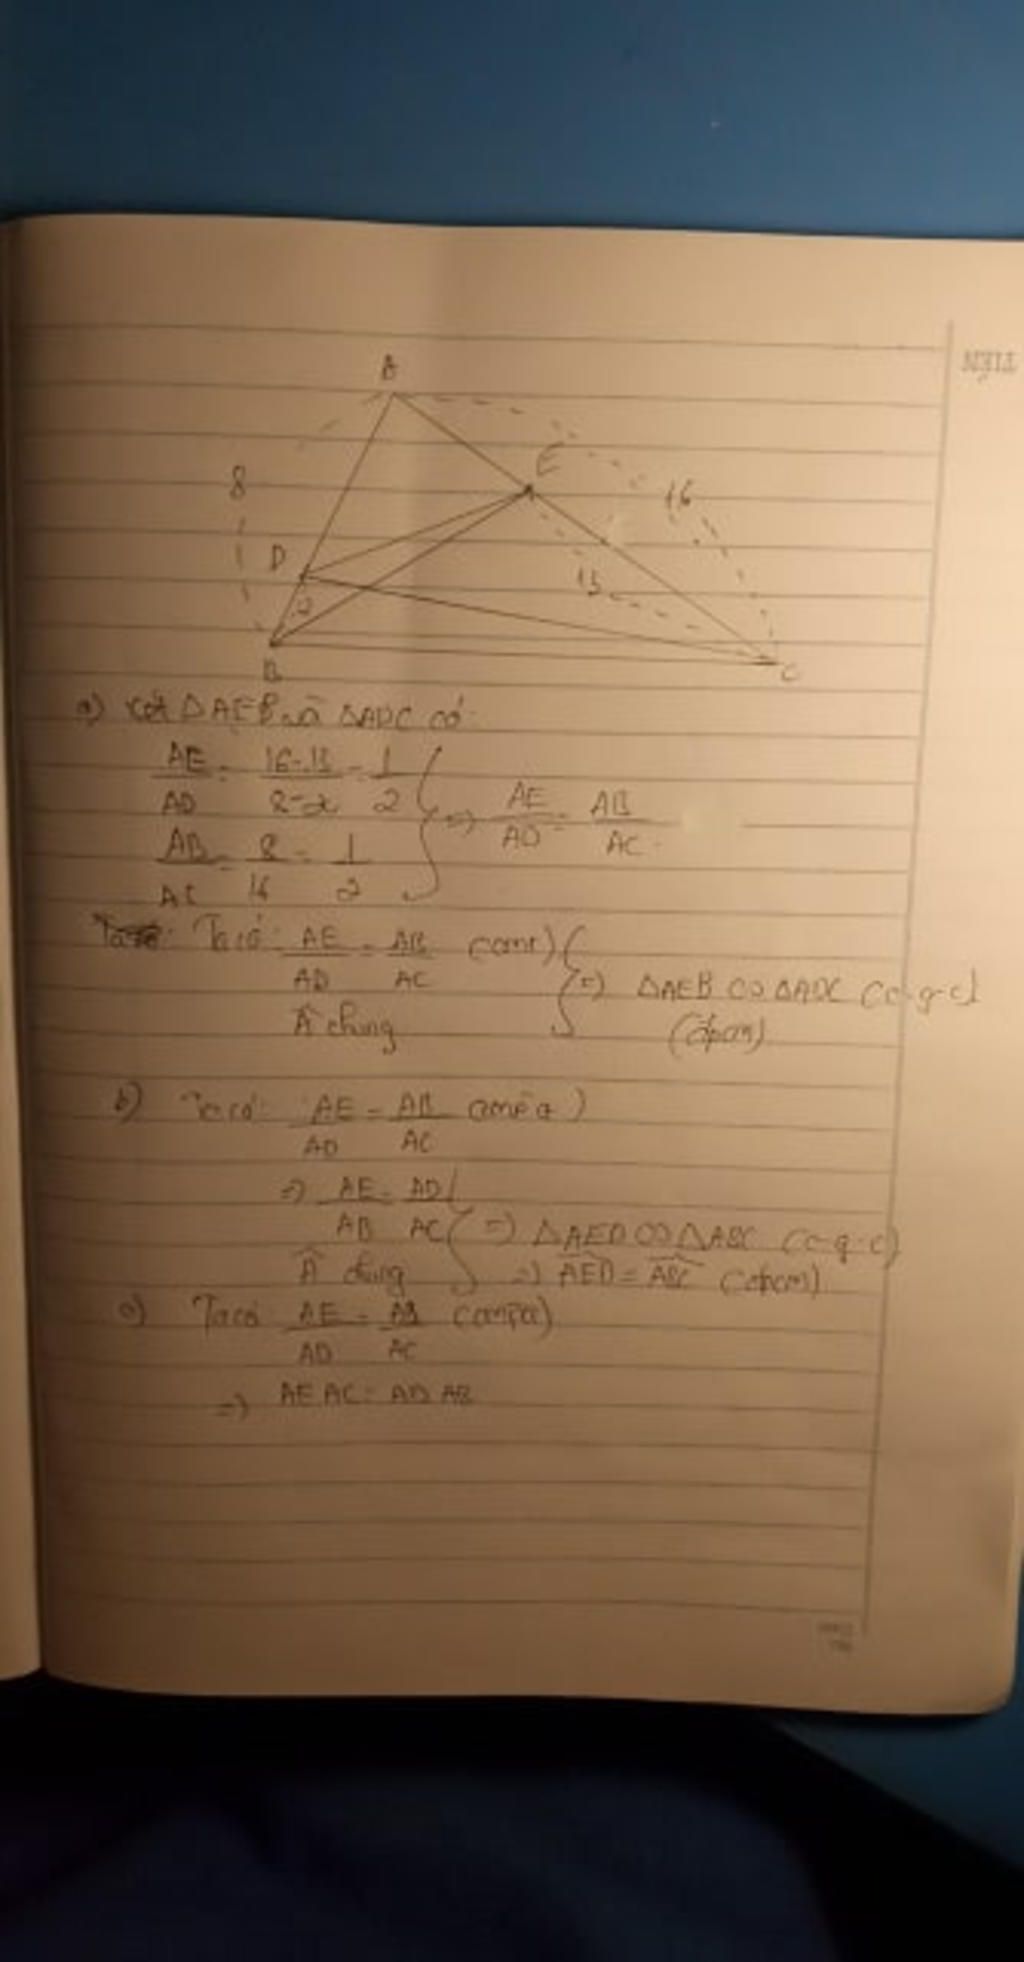 A
8
E
16
D
13
2
B
C
a) Xét ΔAEB và ΔADC có:
AE/AD = 16-13/8-2 = 1/2
AB/AC = 8/16 = 1/2
=> AE/AD = AB/AC
Ta có: AE/AD = AB/AC (cmt)
Â chung
=> ΔAEB ∽ ΔADC (c-g-c)
(đpcm)
b) Ta có: AE/AD = AB/AC (cmp a)
=> AE/AB = AD/AC
Â chung
=> ΔAED ∽ ΔABC (c-g-c)
=> AED = ABC (đpcm)
c) Ta có AE/AD = AB/AC (cmp a)
=> AE AC = AD AB